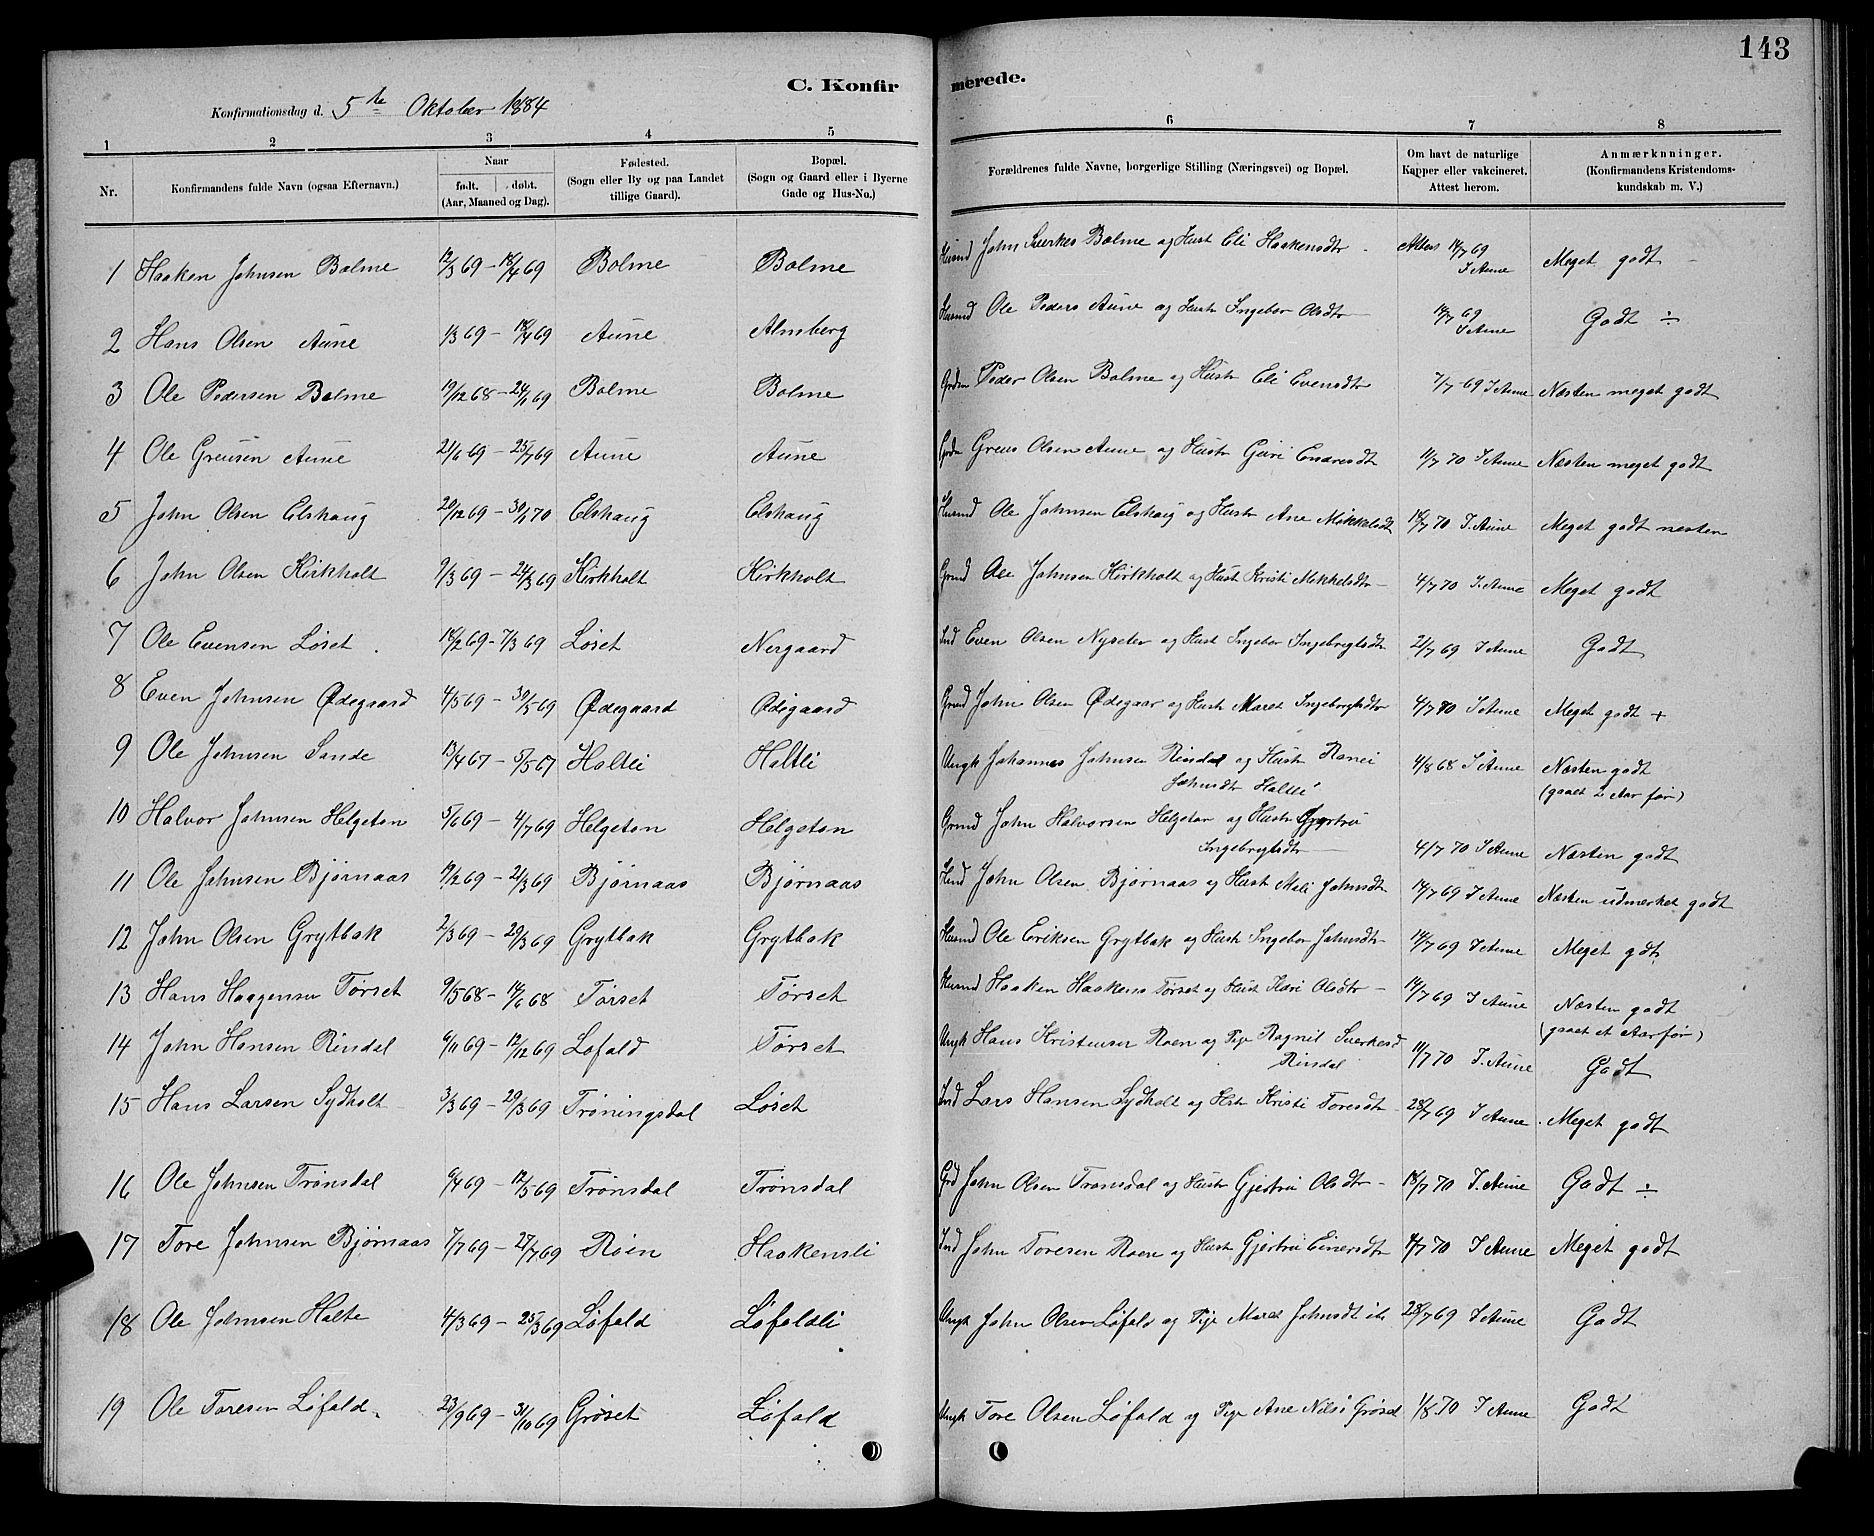 143
C. Konfirmerede.
Konfirmationsdag d. 5te Oktober 1884
1 2 3 4 5 6 7 8
Nr. Konfirmandens fulde Navn (ogsaa Efternavn.) Naar født. døbt. (Aar, Maaned og Dag). Fødested. (Sogn eller By og paa Landet tillige Gaard). Bopæl. (Sogn og Gaard eller i Byerne Gade og Hus-No.) Forældrenes fulde Navne, borgerlige Stilling (Næringsvei) og Bopæl. Om havt de naturlige Kapper eller vakcineret. Attest herom. Anmærknninger. (Konfirmandens Kristendoms-kundskab m. V.)
1 Haaken Johnsen Bolme 12/3 69 – 18/4 69 Bolme Bolme Husmd John Sverkes Bolme og Hust Eli Haakensdtr Attest 14/7 69 I Aune Meget godt
2 Hans Olsen Aune 1/3 69 – 18/4 69 Aune Almberg Husmd Ole Peders Aune og Hust Ingebor Olsdtr 14/7 69 I Aune Godt ÷
3 Ole Pedersen Bolme 19/12 68 – 24/1 69 Bolme Bolme Grdm Peder Olsen Bolme og Hustr Eli Evensdtr 7/7 69 I Aune Næsten meget godt
4 Ole Greusen Aune 21/6 69 – 25/7 69 Aune Aune Grdm Greus Olsen Aune og Hustr Guri Enaresdtr 11/7 70 I Aune Næsten meget godt
5 John Olsen Elshaug 20/12 69 – 30/1 70 Elshaug Elshaug Husmd Ole Johnsen Elshaug og Hustr Ane Mikkelsdt 18/7 70 I. Aune Meget godt nesten
6 John Olsen Kirkholt 9/3 69 – 24/3 69 Kirkholt Kirkholt Grmd Ole Johnsen Kirkholt og Hust Kristi Mikkelsdtr 4/7 70 I. Aune Meget godt
7 Ole Evensen Løset 18/2 69 – 7/3 69 Løset Nergaard Ind Even Olsen Nyseter og Hust Ingebor Ingebregtsdtr 21/7 69 I Aune Godt
8 Even Johnsen Ødegaard 4/5 69 – 30/5 69 Ødegaard Ødegaard Grmd John Olsen Ødegaar og Hustr Maret Ingebregtsdtr 4/7 70 I Aune Meget godt +
9 Ole Johnsen Sande 13/4 67 – 5/5 67 Haltli Haltli Ungk Johannes Johnsen Rindal og Hustr Ranei Johnsdtr Haltli 4/8 68 I Aune Næsten godt (gaaet 2 Aar før)
10 Halvor Johnsen Helgeton 5/6 69 – 4/7 69 Helgeton Helgeton Grmd John Halvorsen Helgeton og Hustr Gjertru Ingebregtsdtr 4/7 70 I Aune Næsten godt
11 Ole Johnsen Bjørnaas 19/2 69 – 21/3 69 Bjørnaas Bjørnaas Hmd John Olsen Bjørnaas og Hust Mali Johnsdtr 14/7 69 I Aune Næsten udmerket godt
12 John Olsen Grytbak 2/3 69 – 29/3 69 Grytbak Grytbak Husmd Ole Eriksen Grytbak og Hustr Ingebor Johnsdtr 14/7 69 I Aune Meget gdt
13 Hans Haagensen Tørset 9/5 68 – 14/6 68 Tørset Tørset Husmd Haaken Haakens Tørset og Hust Kari Olsdtr 14/7 69 I Aune Næsten godt (gaaet et Aar før)
14 John Hansen Rindal 6/11 69 – 12/12 69 Løfald Tørset Ungk Hans Kristensen Roen og Pige Ragnil Sverkesd Rindal 11/7 70 I. Aune Godt
15 Hans Larsen Sydholt 3/3 69 – 29/3 69 Trøningsdal Løset Ind Lars Hansen Sydholt og Hstr Kristi Toresdtr 28/7 69 I Aune Meget godt
16 Ole Johnsen Trønsdal 6/4 69 – 12/5 69 Trønsdal Trønsdal Grd John Olsen Trønsdal og Hustr Gjertru Olsdtr 18/7 70 I. Aune Godt ÷
17 Tore Johnsen Bjørnaas 7/7 69 – 27/7 69 Røen Haakensli Ind John Toresen Roen og Hustr Gjertru Einersdtr 4/7 70 I Aune Meget godt
18 Ole Johnsen Halte 4/3 69 – 25/3 69 Løfald Løfaldli Ungk John Olsen Løfald og Pige Maret Johnsdt ib 28/7 69 I Aune Godt
19 Ole Toresen Løfald 23/9 69 – 31/10 69 Grøset Løfald Ungk Tore Olsen Løfald og Pige Ane Nilsd Grøset 1/8 70 I Aune Godt